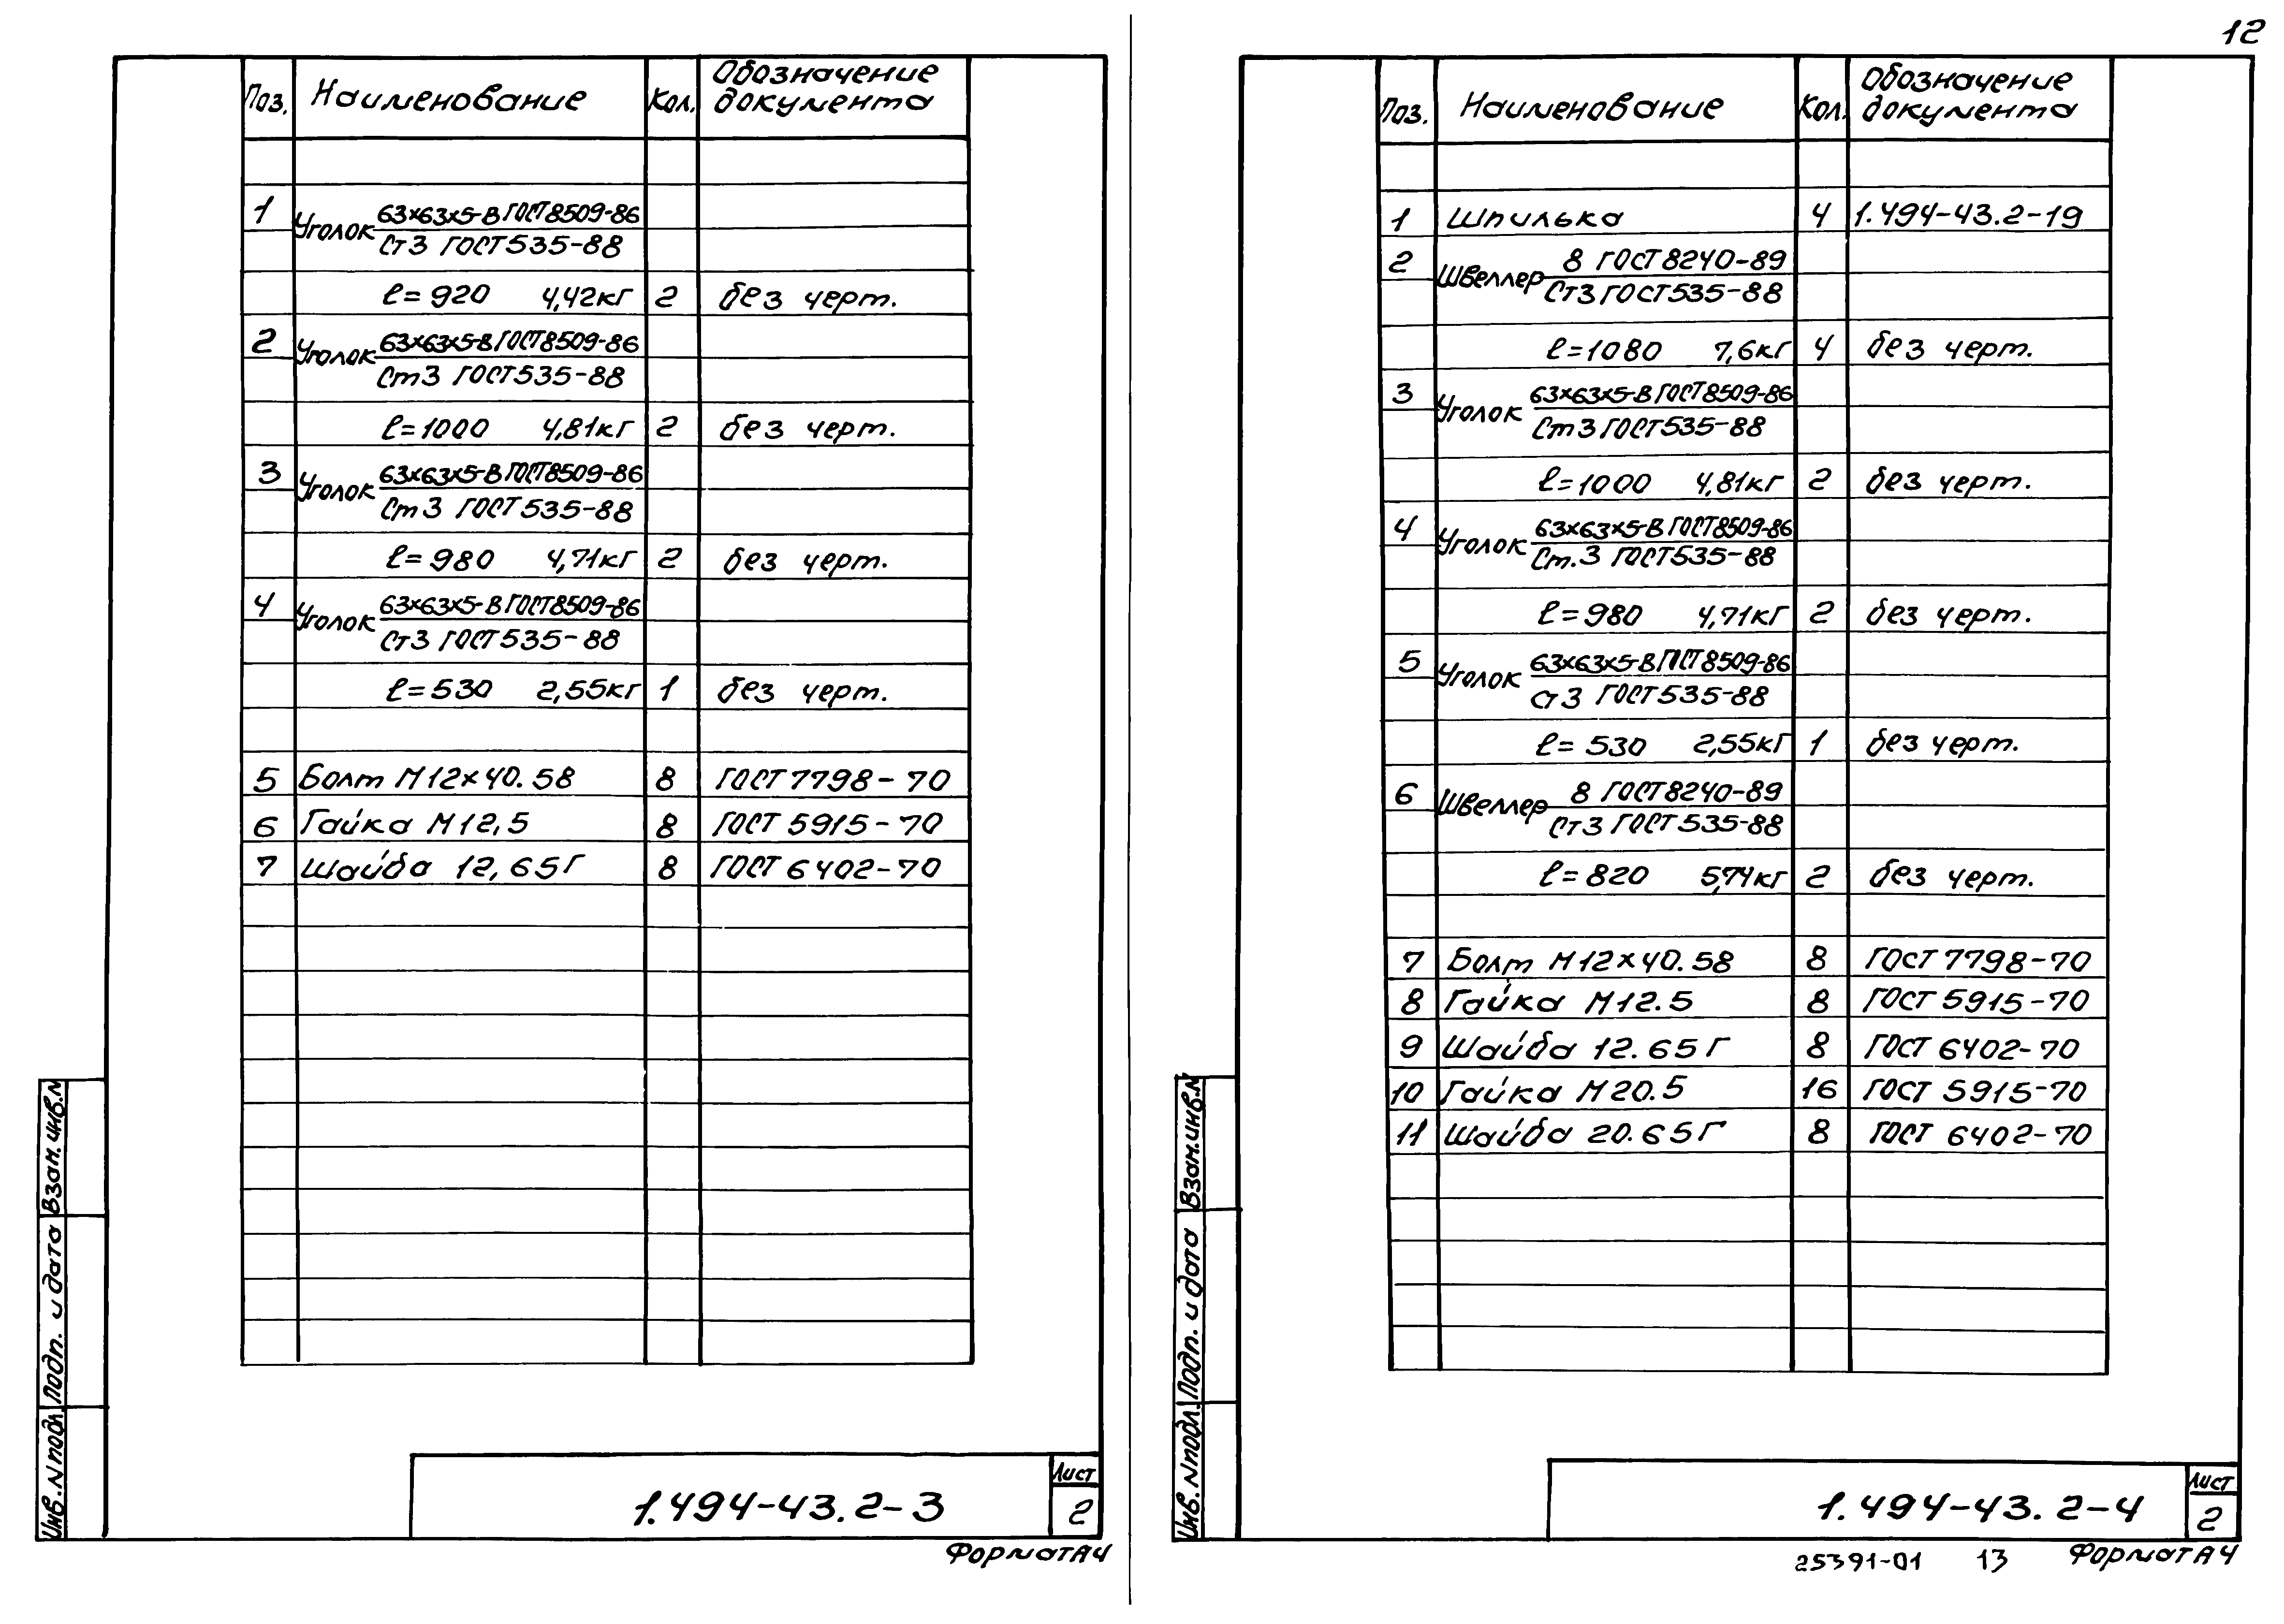 12
Поз. Наименование Кол. Обозначение документа
1 Уголок 63х63х5-В ГОСТ 8509-86
Ст3 ГОСТ 535-88
ℓ=920 4,42кг 2 без черт.
2 Уголок 63х63х5-В ГОСТ 8509-86
Ст3 ГОСТ 535-88
ℓ=1000 4,81кг 2 без черт.
3 Уголок 63х63х5-В ГОСТ 8509-86
Ст3 ГОСТ 535-88
ℓ=980 4,71кг 2 без черт.
4 Уголок 63х63х5-В ГОСТ 8509-86
Ст3 ГОСТ 535-88
ℓ=530 2,55кг 1 без черт.
5 Болт М12х40.58 8 ГОСТ 7798-70
6 Гайка М12,5 8 ГОСТ 5915-70
7 Шайба 12,65Г 8 ГОСТ 6402-70
Взам.инв.N
Подп. и дата
Инв.N подл.
1.494-43.2-3
Лист
2
Формат А4
Поз. Наименование Кол. Обозначение документа
1 Шпилька 4 1.494-43.2-19
2 Швеллер 8 ГОСТ 8240-89
Ст3 ГОСТ 535-88
ℓ=1080 7,6кг 4 без черт.
3 Уголок 63х63х5-В ГОСТ 8509-86
Ст3 ГОСТ 535-88
ℓ=1000 4,81кг 2 без черт.
4 Уголок 63х63х5-В ГОСТ 8509-86
Ст.3 ГОСТ 535-88
ℓ=980 4,71кг 2 без черт.
5 Уголок 63х63х5-В ГОСТ 8509-86
Ст3 ГОСТ 535-88
ℓ=530 2,55кг 1 без черт.
6 Швеллер 8 ГОСТ 8240-89
Ст3 ГОСТ 535-88
ℓ=820 5,74кг 2 без черт.
7 Болт М12х40.58 8 ГОСТ 7798-70
8 Гайка М12.5 8 ГОСТ 5915-70
9 Шайба 12.65Г 8 ГОСТ 6402-70
10 Гайка М20.5 16 ГОСТ 5915-70
11 Шайба 20.65Г 8 ГОСТ 6402-70
Взам.инв.N
Подп. и дата
Инв.N подл.
1.494-43.2-4
Лист
2
25391-01 13 Формат А4